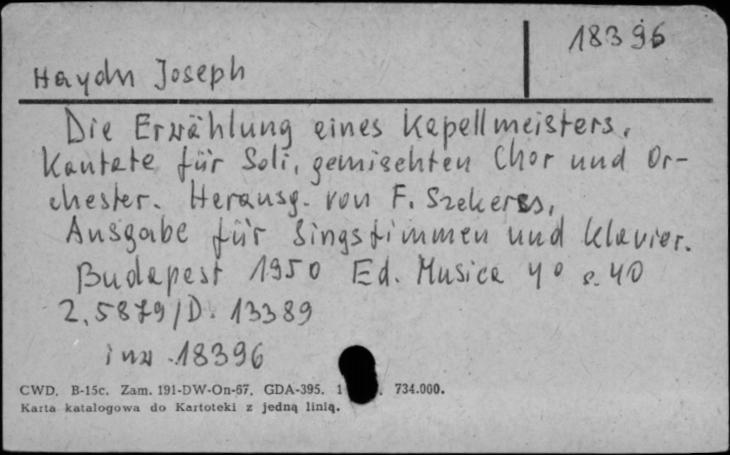 18396
Haydn Joseph
Die Erzählung eines Kapellmeisters.
Kantate für Soli, gemischten Chor und Or-
chester. Herausg. von F. Szekeres,
Ausgabe für Singstimmen und Klavier.
Budapest 1950 Ed. Musica 4° s. 40
2.5879/D. 13389
inw .18396
CWD. B-15c. Zam. 191-DW-On-67. GDA-395. 734.000.
Karta katalogowa do Kartoteki z jedną linią.